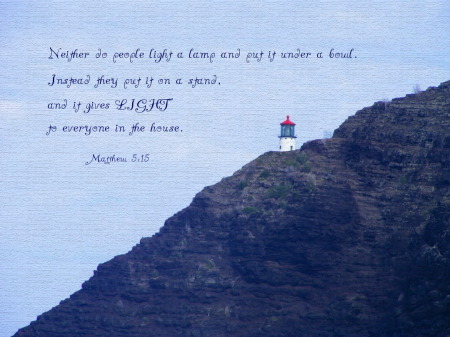 Neither do people light a lamp and put it under a bowl.
Instead they put it on a stand,
and it gives LIGHT
to everyone in the house.
Matthew 5:15